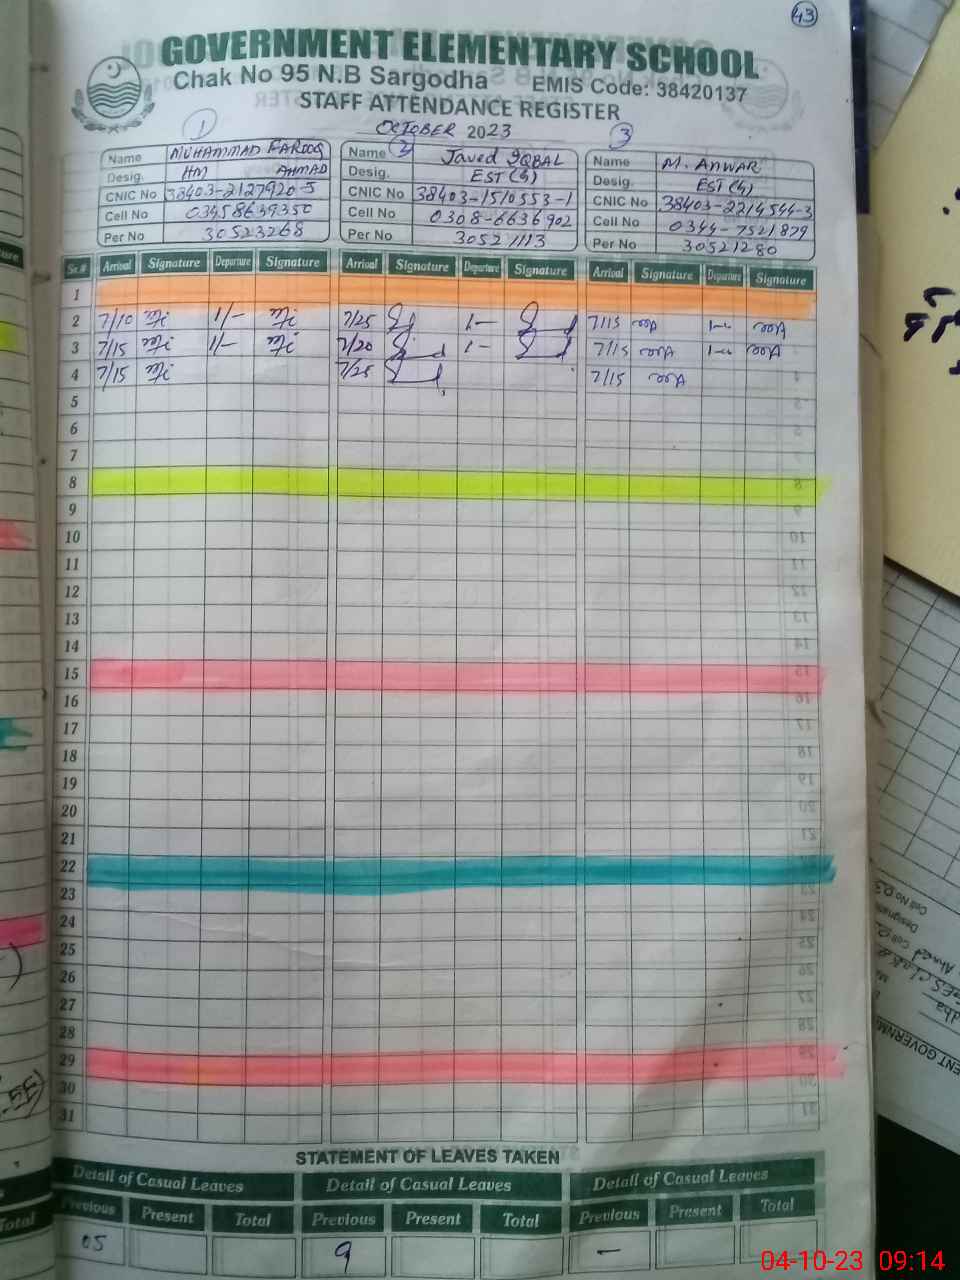 43
GOVERNMENT ELEMENTARY SCHOOL
Chak No 95 N.B Sargodha EMIS Code: 38420137
STAFF ATTENDANCE REGISTER
OCTOBER 2023
1
Name MUHAMMAD FAROOQ
Desig. HM AHMAD
CNIC No 38403-2127920-5
Cell No 03458639350
Per No 30523268
2
Name Javed IQBAL
Desig. EST(S)
CNIC No 38403-1510553-1
Cell No 0308-6636902
Per No 30521113
3
Name M. ANWAR
Desig. EST(S)
CNIC No 38403-2214544-3
Cell No 0344-7521879
Per No 30521280
Sr.# Arrival Signature Departure Signature Arrival Signature Departure Signature Arrival Signature Departure Signature
1
2 7/10 1/- 7/25 1- 7/15
3 7/15 1/- 7/20 1- 7/15
4 7/15 7/25 7/15
5
6
7
8
9
10
11
12
13
14
15
16
17
18
19
20
21
22
23
24
25
26
27
28
29
30
31
STATEMENT OF LEAVES TAKEN
Detail of Casual Leaves Detail of Casual Leaves Detail of Casual Leaves
Previous Present Total Previous Present Total Previous Present Total
05 9 -
Total
04-10-23 09:14